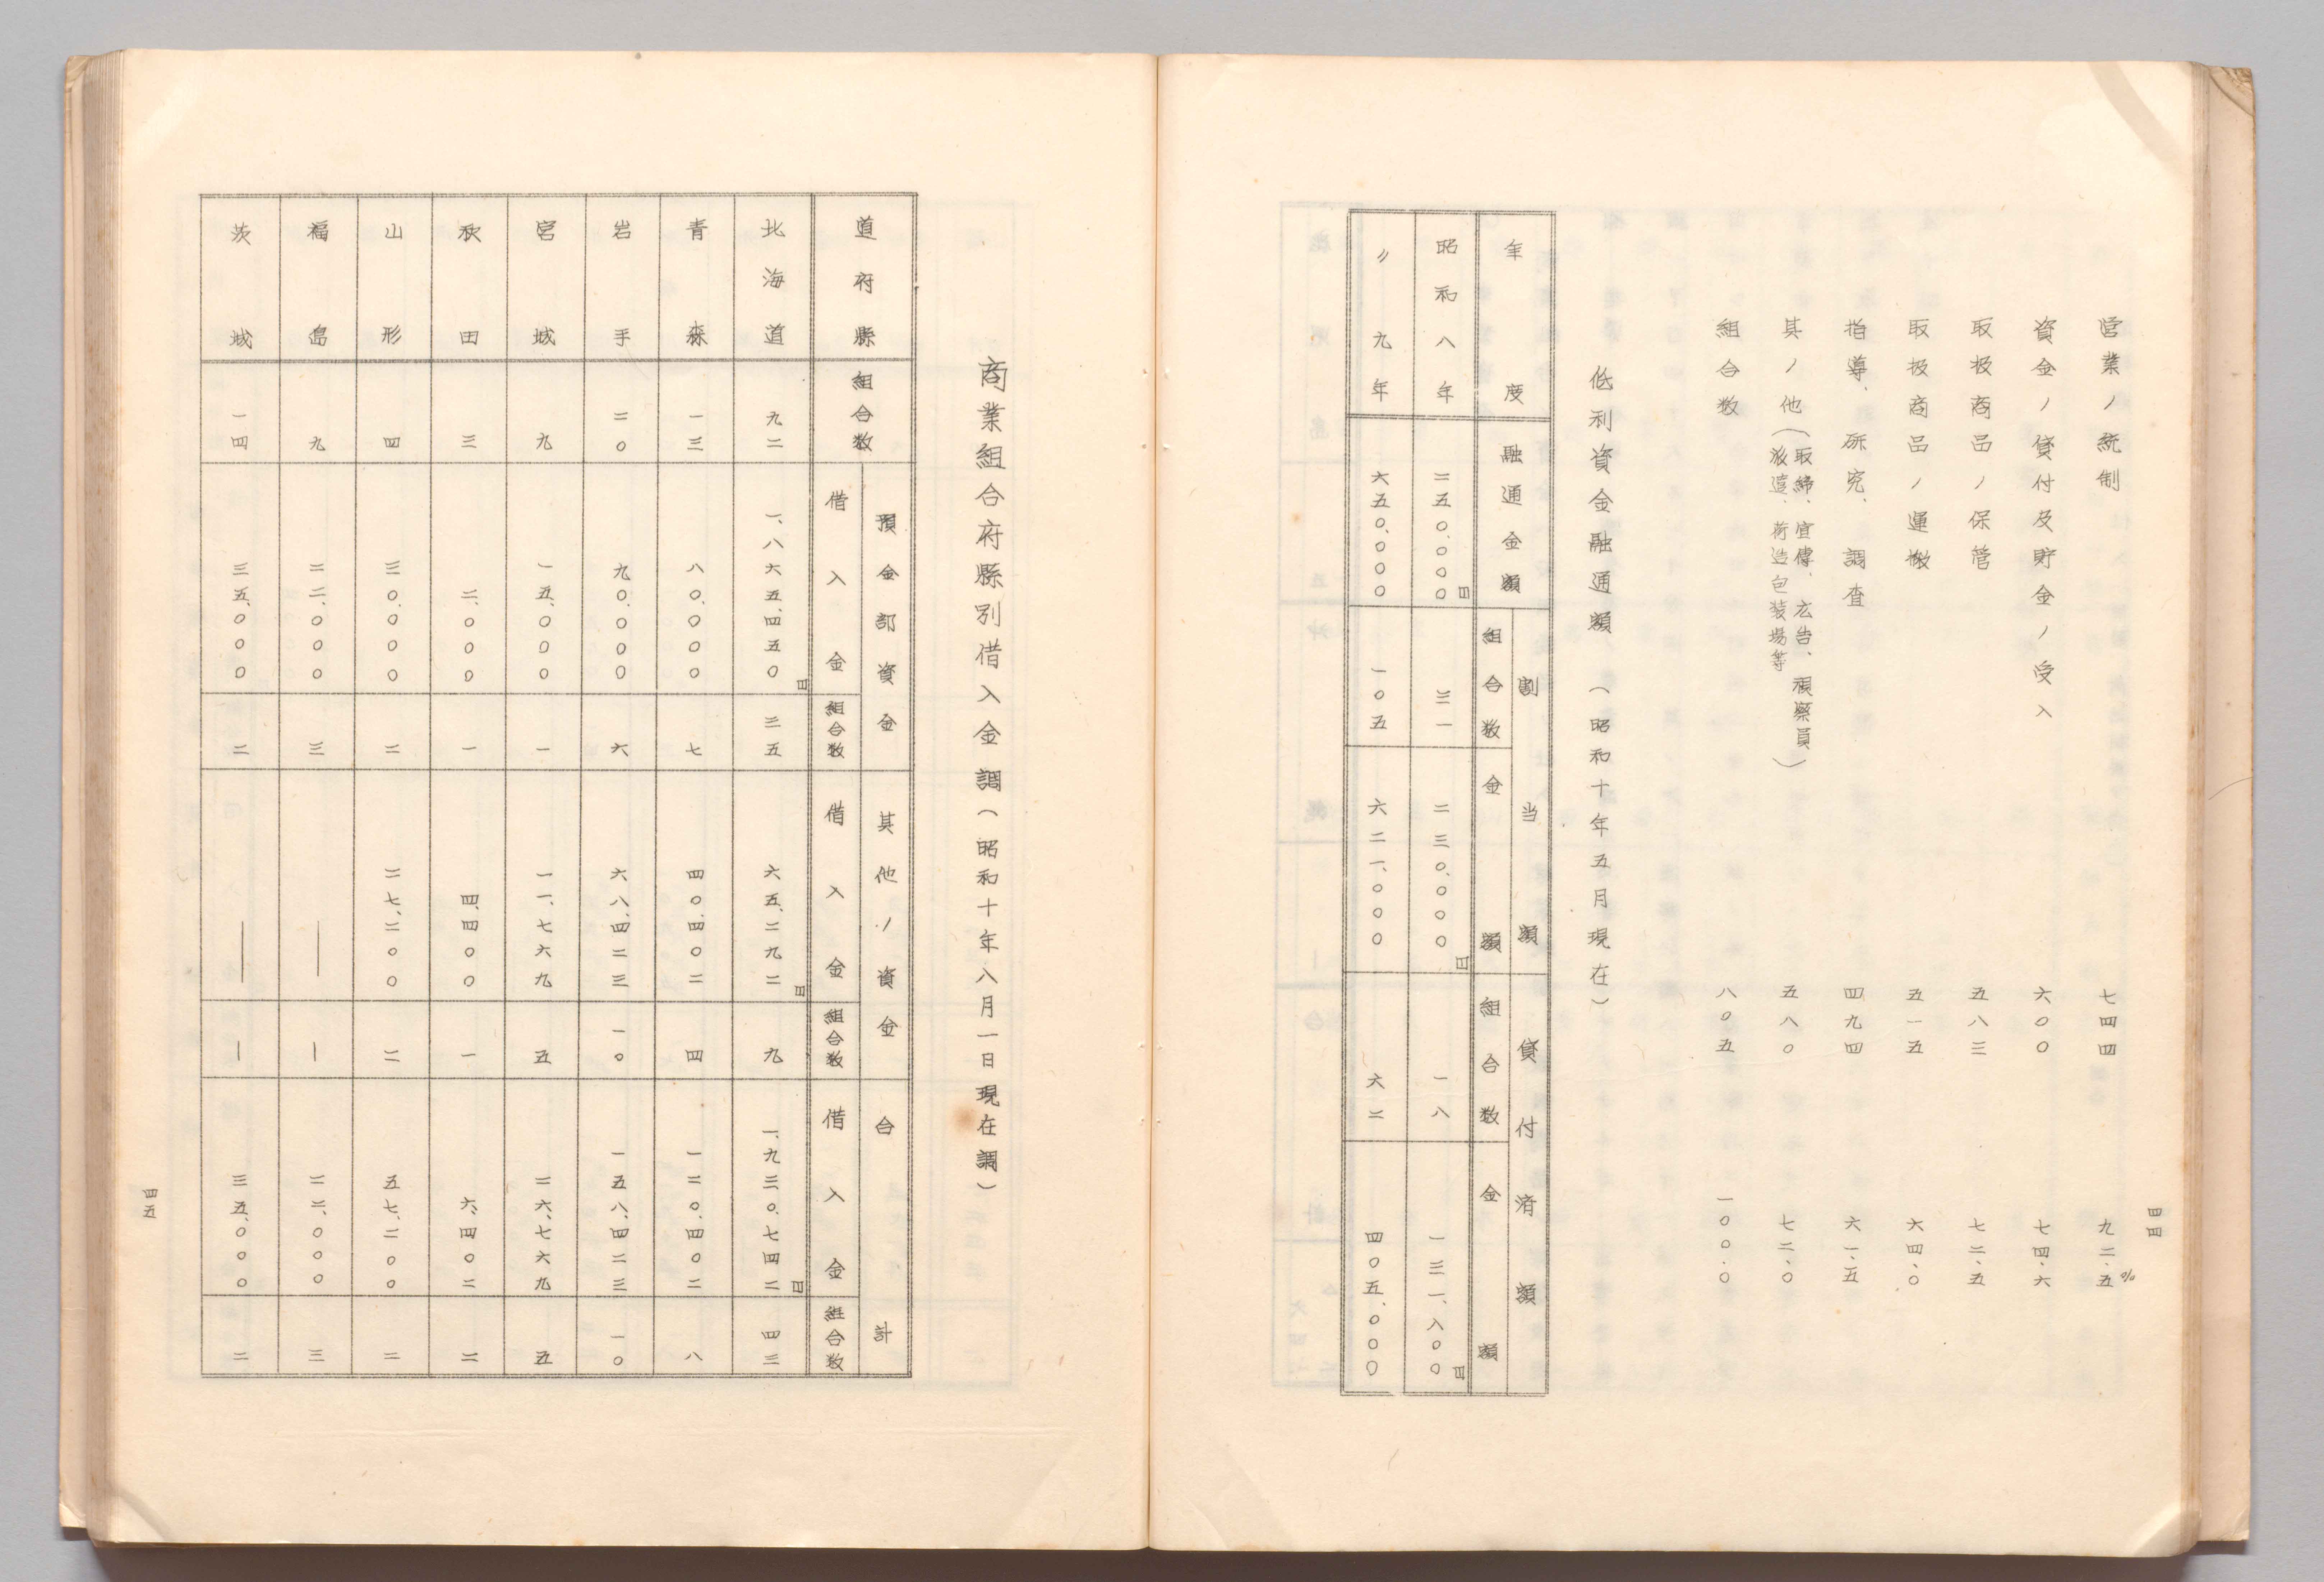 四四
営業ノ統制 七四四 九二.五%
資金ノ貸付及貯金ノ受入 六〇〇 七四、六
取扱商品ノ保管 五八三 七二、五
取扱商品ノ運搬 五一五 六四、〇
指導、研究、調査 四九四 六一、五
其ノ他(取締、宣傳、広告、視察員派遣、荷造包装場等) 五八〇 七二、〇
組合数 八〇五 一〇〇.〇
低利資金融通額(昭和十年五月現在)
年度 融通金額 割当額 貸付済額
組合数 金額 組合数 金額
昭和八年 二五〇.〇〇〇円 三一 二三〇.〇〇〇円 一八 一三一、八〇〇円
〃九年 六五〇.〇〇〇 一〇五 六二一、〇〇〇 六二 四〇五、〇〇〇
商業組合府縣別借入金調(昭和十年八月一日現在調)
道府縣 組合数 預金部資金 其他ノ資金 合計
借入金 組合数 借入金 組合数 借入金 組合数
北海道 九二 一、八六五、四五〇円 三五 六五、二九二円 九 一、九三〇、七四二円 四三
青森 一三 八〇、〇〇〇 七 四〇、四〇二 四 一二〇、四〇二 八
岩手 二〇 九〇、〇〇〇 六 六八、四二三 一〇 一五八、四二三 一〇
宮城 九 一五、〇〇〇 一 一一、七六九 五 二六、七六九 五
秋田 三 二、〇〇〇 一 四、四〇〇 一 六、四〇二 二
山形 四 三〇、〇〇〇 二 二七、二〇〇 二 五七、二〇〇 二
福島 九 二二、〇〇〇 三 — — 二二、〇〇〇 三
茨城 一四 三五、〇〇〇 二 — — 三五、〇〇〇 二
四五